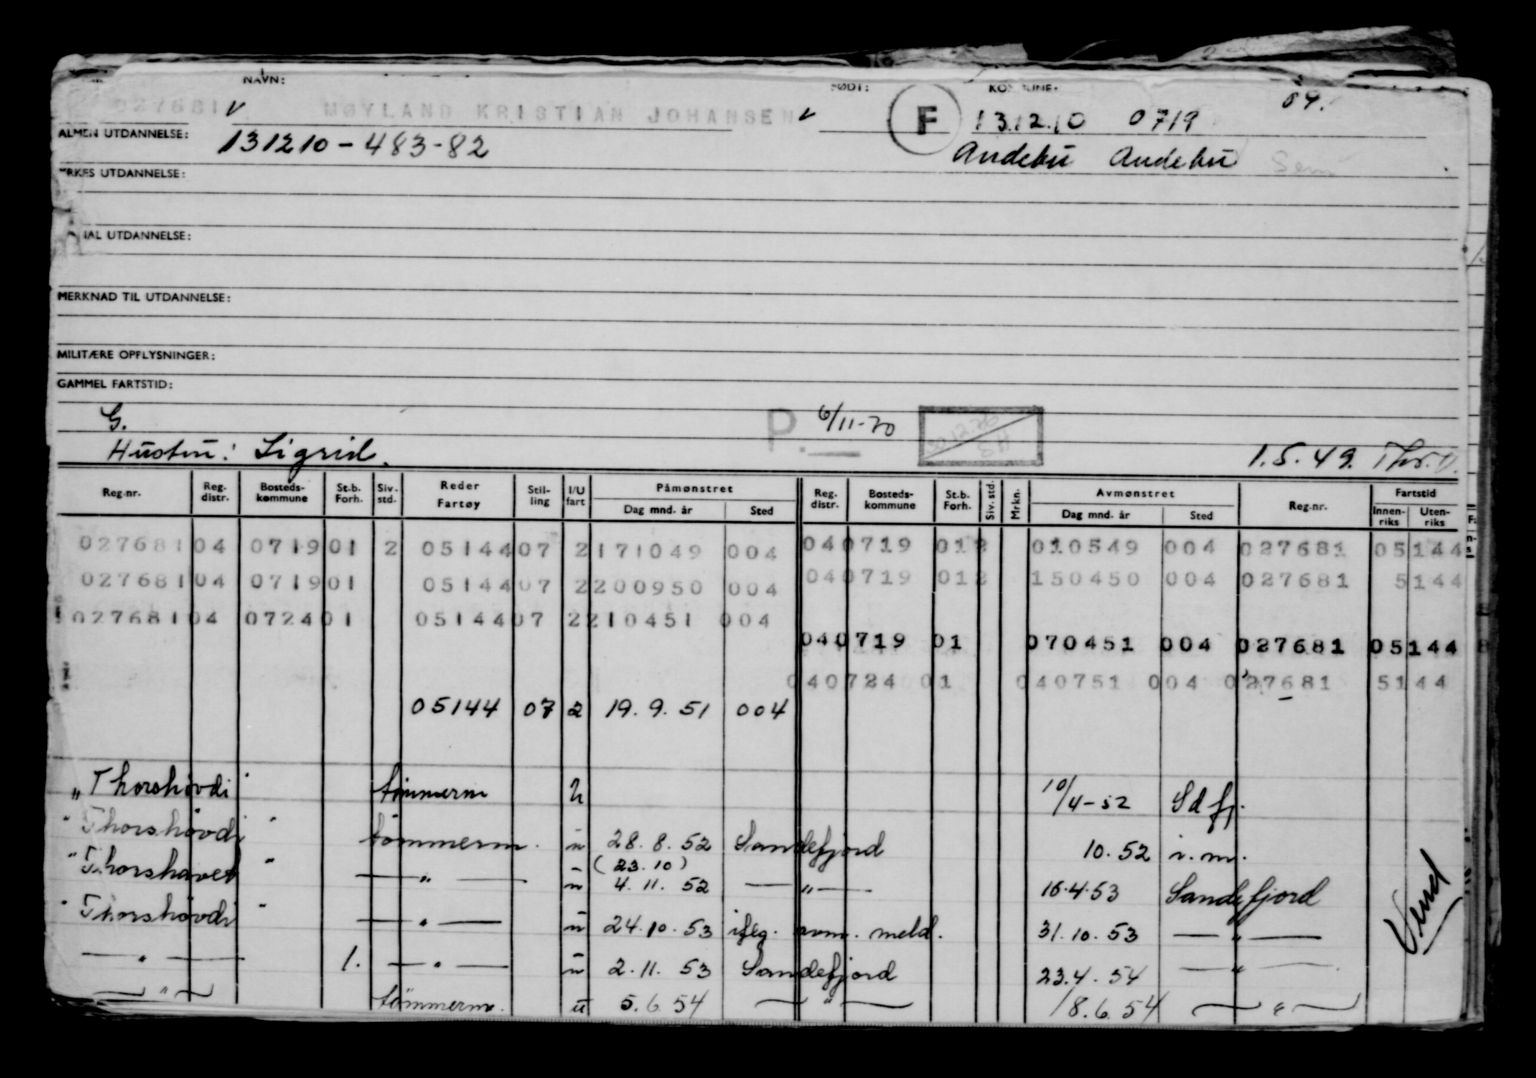 NAVN: FØDT: KOMMUNE:
027681 v MØYLAND KRISTIAN JOHANSEN v F 13.12.10 0719 69.
ALMEN UTDANNELSE: 131210-483-82 Andebu Andebu Sem
YRKES UTDANNELSE:
SPESIAL UTDANNELSE:
MERKNAD TIL UTDANNELSE:
MILITÆRE OPPLYSNINGER:
GAMMEL FARTSTID:
G. P. 6/11-70
Hustru: Sigrid. 1.5.49.
Reg.nr. Reg. distr. Bosteds-kommune St.b. Forh. Siv. std. Reder Fartøy Stil-ling I/U fart Påmønstret Dag mnd. år Sted Reg. distr. Bosteds-kommune St.b. Forh. Siv. std. Mrkn. Avmønstret Dag mnd. år Sted Reg.nr. Fartstid Innen-riks Uten-riks
027681 04 0719 01 2 05144 07 2 171049 004 04 0719 01 2 010549 004 027681 05144
027681 04 0719 01 05144 07 2 200950 004 04 0719 01 2 150450 004 027681 5144
027681 04 0724 01 05144 07 2 210451 004
04 0719 01 070451 004 027681 05144
04 0724 01 040751 004 027681 5144
05144 07 2 19.9.51 004
"Thorshøvdi" tømmerm u 10/4-52 Sdfj.
"Thorshøvdi" tømmerm. u 28.8.52 Sandefjord 10.52 i.m.
(23.10)
"Thorshavet" — " — u 4.11.52 — " — 16.4.53 Sandefjord
"Thorshøvdi" — " — u 24.10.53 iflg. avm. meld. 31.10.53 — " —
— " — 1. — " — u 2.11.53 Sandefjord 23.4.54 — " —
— " — tømmerm. u 5.6.54 — " — 18.6.54 — " —
Vend